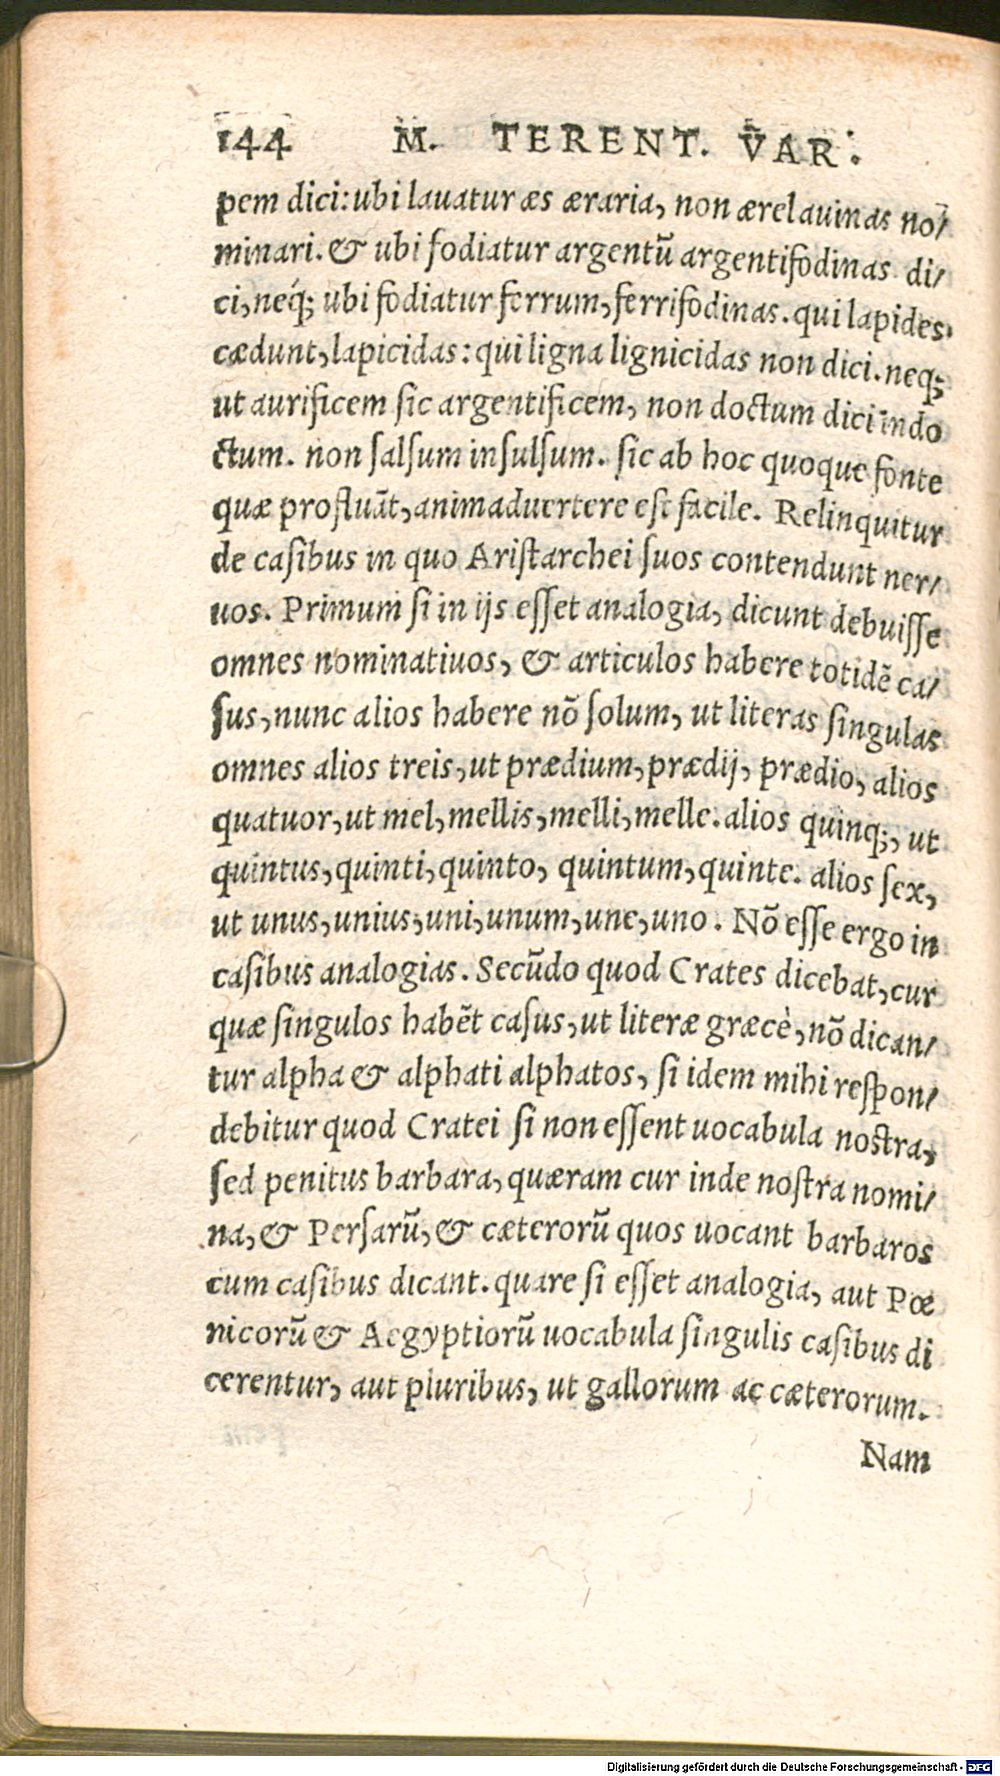 144 M. TERENT. VAR.
pem dici: ubi lauatur æs æraria, non ærelauinas no/
minari. & ubi fodiatur argentū argentifodinas di/
ci, neq; ubi fodiatur ferrum, ferrifodinas. qui lapides
cædunt, lapicidas: qui ligna lignicidas non dici. neq;
ut aurificem sic argentificem, non doctum dici indo
ctum. non salsum insulsum. sic ab hoc quoque fonte
quæ profluāt, animaduertere est facile. Relinquitur
de casibus in quo Aristarchei suos contendunt ner/
uos. Primum si in ijs esset analogia, dicunt debuisse
omnes nominatiuos, & articulos habere totidē ca/
sus, nunc alios habere nō solum, ut literas singulas
omnes alios treis, ut prædium, prædij, prædio, alios
quatuor, ut mel, mellis, melli, melle. alios quinq;, ut
quintus, quinti, quinto, quintum, quinte. alios sex,
ut unus, unius, uni, unum, une, uno. Nō esse ergo in
casibus analogias. Secūdo quod Crates dicebat, cur
quæ singulos habēt casus, ut literæ græcè, nō dican/
tur alpha & alphati alphatos, si idem mihi respon/
debitur quod Cratei si non essent uocabula nostra,
sed penitus barbara, quæram cur inde nostra nomi/
na, & Persarū, & cæterorū quos uocant barbaros
cum casibus dicant. quare si esset analogia, aut Pœ
nicorū & Aegyptiorū uocabula singulis casibus di
cerentur, aut pluribus, ut gallorum ac cæterorum.
Nam
Digitalisierung gefördert durch die Deutsche Forschungsgemeinschaft - DFG